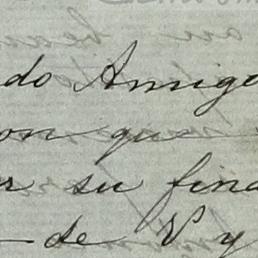 do Amigo
on que
r su fina
de V y